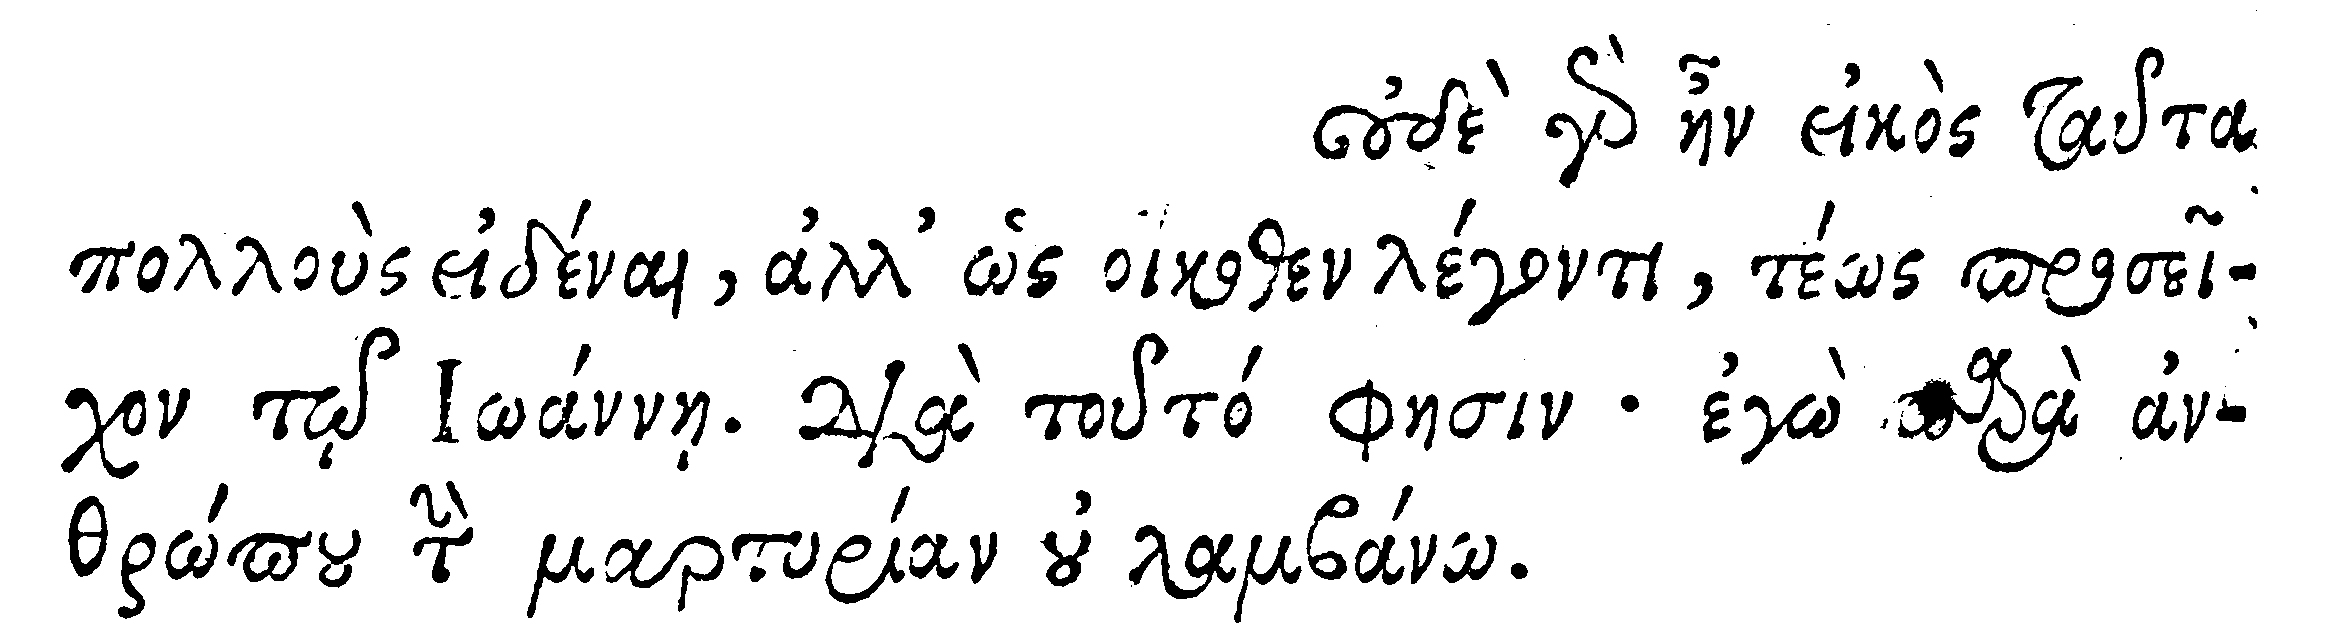 οὐδὲ γὰρ ἦν εἰκὸς ταῦτα
πολλοὺς εἰδέναι, ἀλλ' ὡς οἴκοθεν λέγοντι, τέως προσεῖ-
χον τῷ Ἰωάννῃ. Διὰ τοῦτό φησιν · ἐγὼ παρὰ ἀν-
θρώπου τὴν μαρτυρίαν οὐ λαμβάνω.